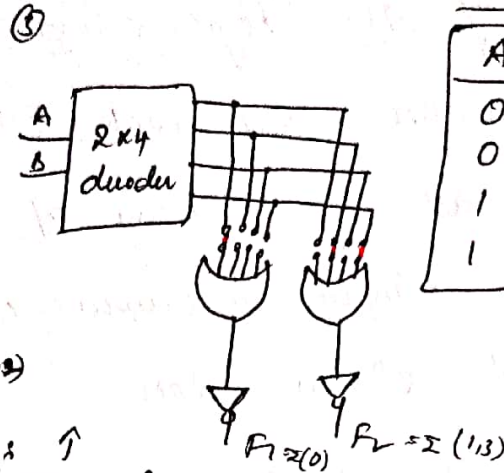 ③
A
B
2x4
decoder
A
0
0
1
1
2)
F1=Σ(0)
F2 = Σ (1,3)